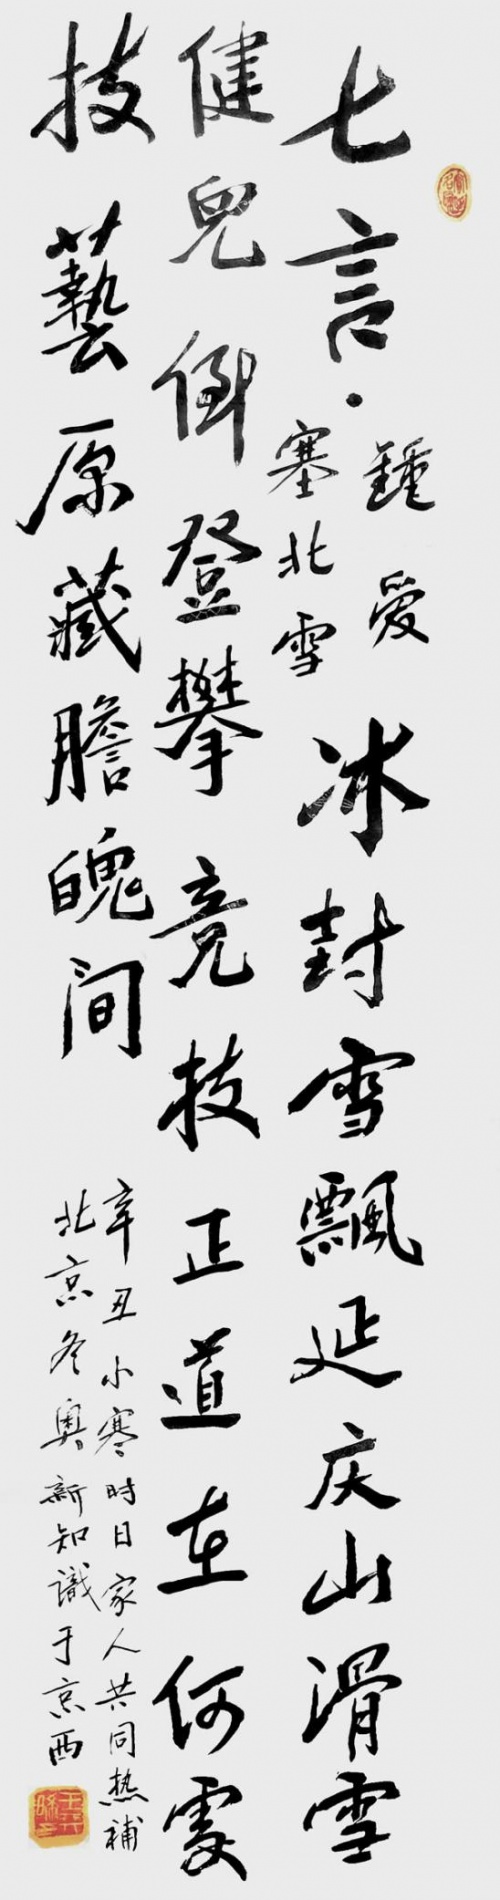 七言·鍾爱
塞北雪
冰封雪飘延庆山滑雪
健兒倒登攀竞技正道在何處
技藝原藏膽魄间
辛丑小寒时日家人共同热補
北京冬奥新知識于京西